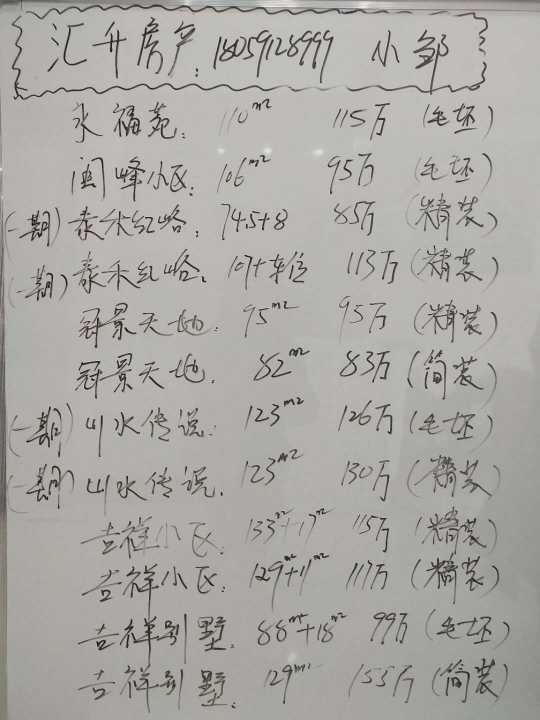 汇升房产:18059128999 小邹
永福苑: 110m² 115万 (毛坯)
闽峰小区: 106m² 95万 (毛坯)
(一期) 泰禾红峪: 74.5+8 85万 (精装)
(一期) 泰禾红峪: 107+车位 113万 (精装)
冠景天地: 95m² 95万 (精装)
冠景天地. 82m² 83万 (简装)
(一期) 山水传说: 123m² 126万 (毛坯)
(一期) 山水传说. 123m² 130万 (精装)
吉祥小区. 133m²+17m² 115万 (精装)
吉祥小区. 129m²+11m² 117万 (精装)
吉祥别墅. 88m²+18m² 99万 (毛坯)
吉祥别墅. 129m² 155万 (简装)